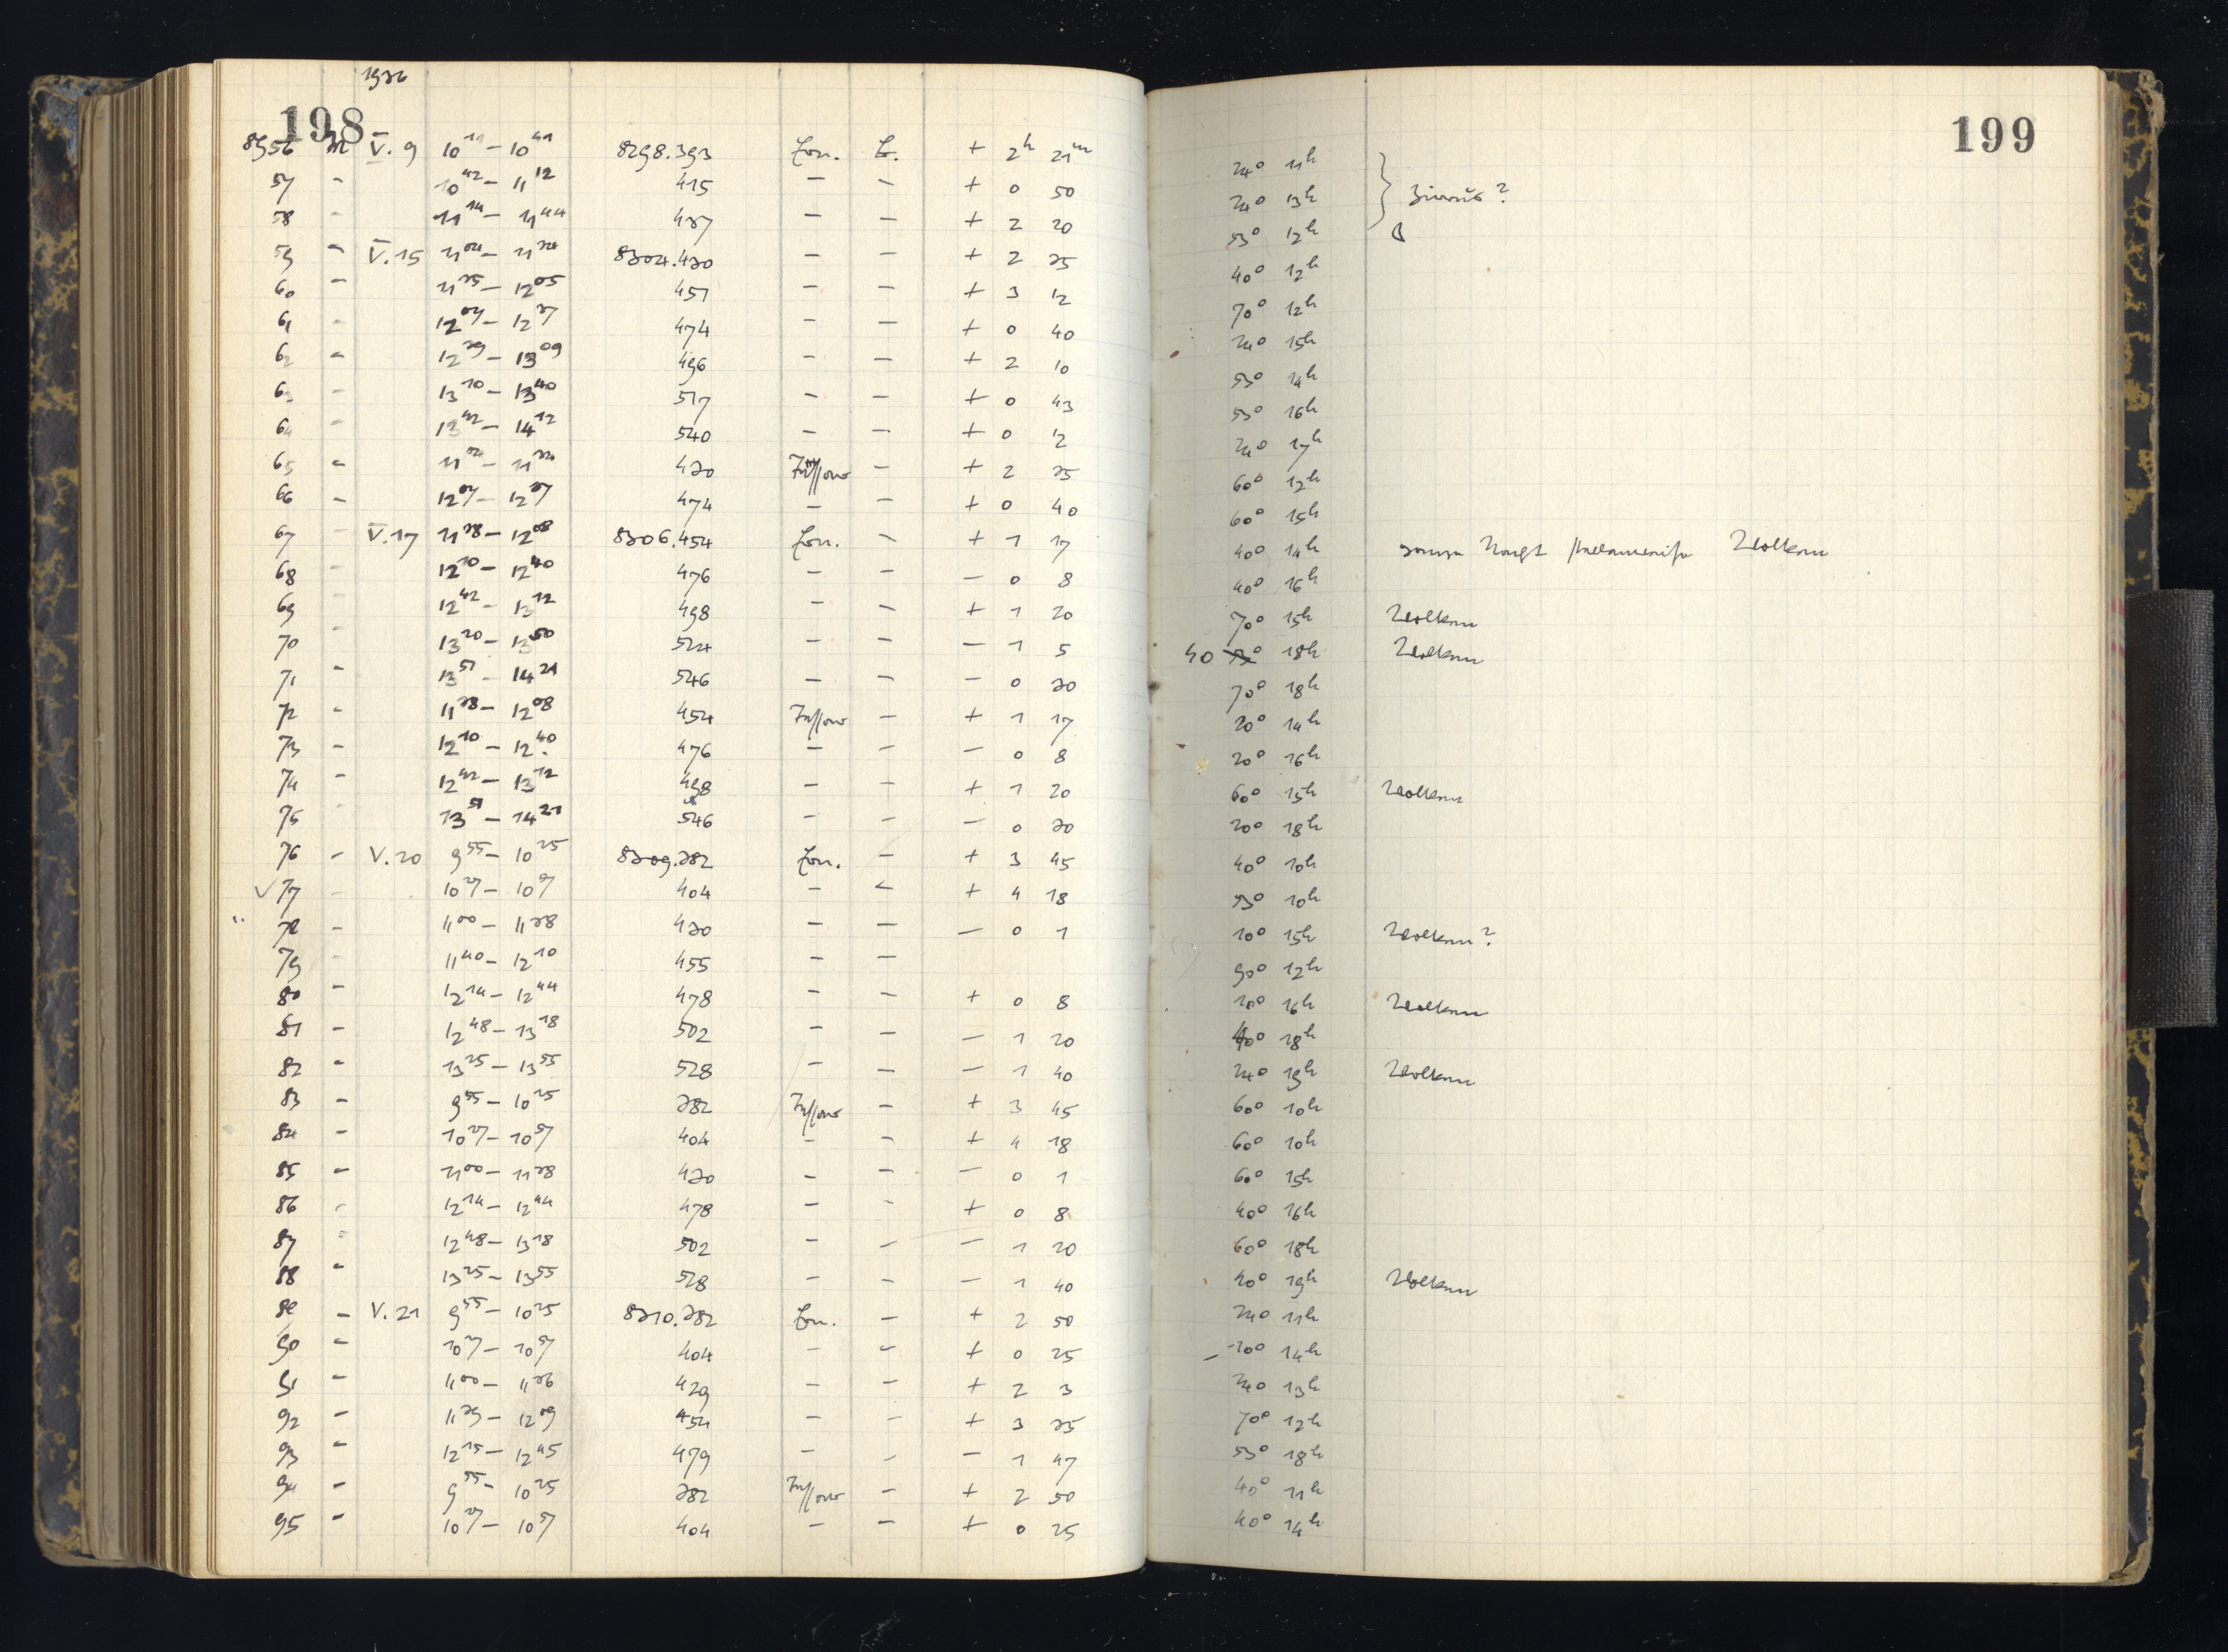 1936
198
199
8956 M V. 9 10 11 – 10 41 8298.393 Zon. E. + 2h 21m 240 11h
57 – 10 42 – 11 12 415 – – + 0 50 240 13h } Zirrus?
58 – 11 14 – 11 44 437 – – + 2 20 530 12h
59 – V. 15 11 04 – 11 34 8304.430 – – + 2 35 400 12h
60 – 11 35 – 12 05 451 – – + 3 12 700 12h
61 – 12 07 – 12 37 474 – – + 0 40 240 15h
62 – 12 39 – 13 09 496 – – + 2 10 530 14h
63 – 13 10 – 13 40 517 – – + 0 43 530 16h
64 – 13 42 – 14 12 540 – – + 0 12 240 17h
65 – 11 04 – 11 34 430 – + 2 35 600 12h
66 – 12 07 – 12 37 474 – – + 0 40 600 15h
67 – V. 17 11 38 – 12 08 8306.454 Zon. – + 1 17 400 14h Wolken
68 – 12 10 – 12 40 476 – – – 0 8 400 16h
69 – 12 42 – 13 12 498 – – + 1 20 700 15h Wolken
70 – 13 20 – 13 50 524 – – – 1 5 40 18h Wolken
71 – 13 51 – 14 21 546 – – – 0 30 700 18h
72 – 11 38 – 12 08 454 – + 1 17 200 14h
73 – 12 10 – 12 40 476 – – – 0 8 200 16h
74 – 12 42 – 13 12 498 – – + 1 20 600 15h Wolken
75 – 13 51 – 14 21 546 – – – 0 30 200 18h
76 – V. 20 9 55 – 10 25 8309.382 Zon. – + 3 45 400 10h
✓ 77 – 10 27 – 10 57 404 – – + 4 18 530 10h
" 78 – 11 00 – 11 38 430 – – – 0 1 100 15h Wolken?
79 11 40 – 12 10 455 – – 900 12h
80 – 12 14 – 12 44 478 – – + 0 8 100 16h Wolken
81 – 12 48 – 13 18 502 – – – 1 20 400 18h
82 – 13 25 – 13 55 528 – – – 1 40 240 19h Wolken
83 – 9 55 – 10 25 382 – + 3 45 600 10h
84 – 10 27 – 10 57 404 – – + 4 18 600 10h
85 – 11 00 – 11 38 430 – – – 0 1 600 15h
86 – 12 14 – 12 44 478 – – + 0 8 400 16h
87 – 12 48 – 13 18 502 – – – 1 20 600 18h
88 – 13 25 – 13 55 528 – – – 1 40 400 19h Wolken
89 – V. 21 9 55 – 10 25 8310.382 Zon. – + 2 50 240 11h
90 – 10 27 – 10 57 404 – – + 0 25 – 200 14h
91 – 11 00 – 11 36 429 – – + 2 3 240 13h
92 – 11 39 – 12 09 454 – – + 3 35 700 12h
93 – 12 15 – 12 45 479 – – – 1 47 530 18h
94 – 9 55 – 10 25 382 – + 2 50 400 11h
95 – 10 27 – 10 57 404 – – + 0 25 400 14h